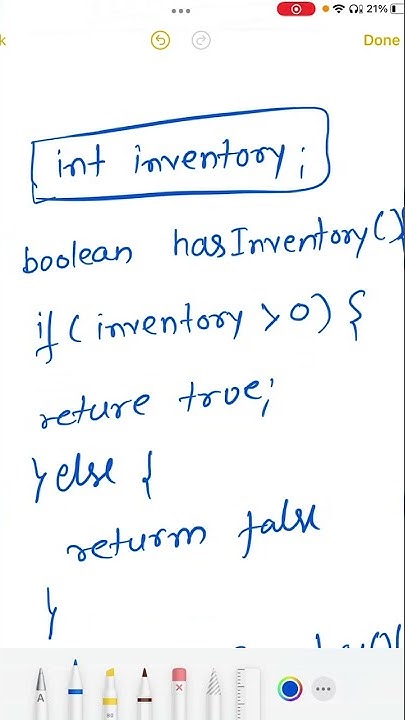 k
Done
21%
int inventory;
boolean hasInventory(){
if(inventory > 0) {
reture true;
} else {
return false
}
A
80